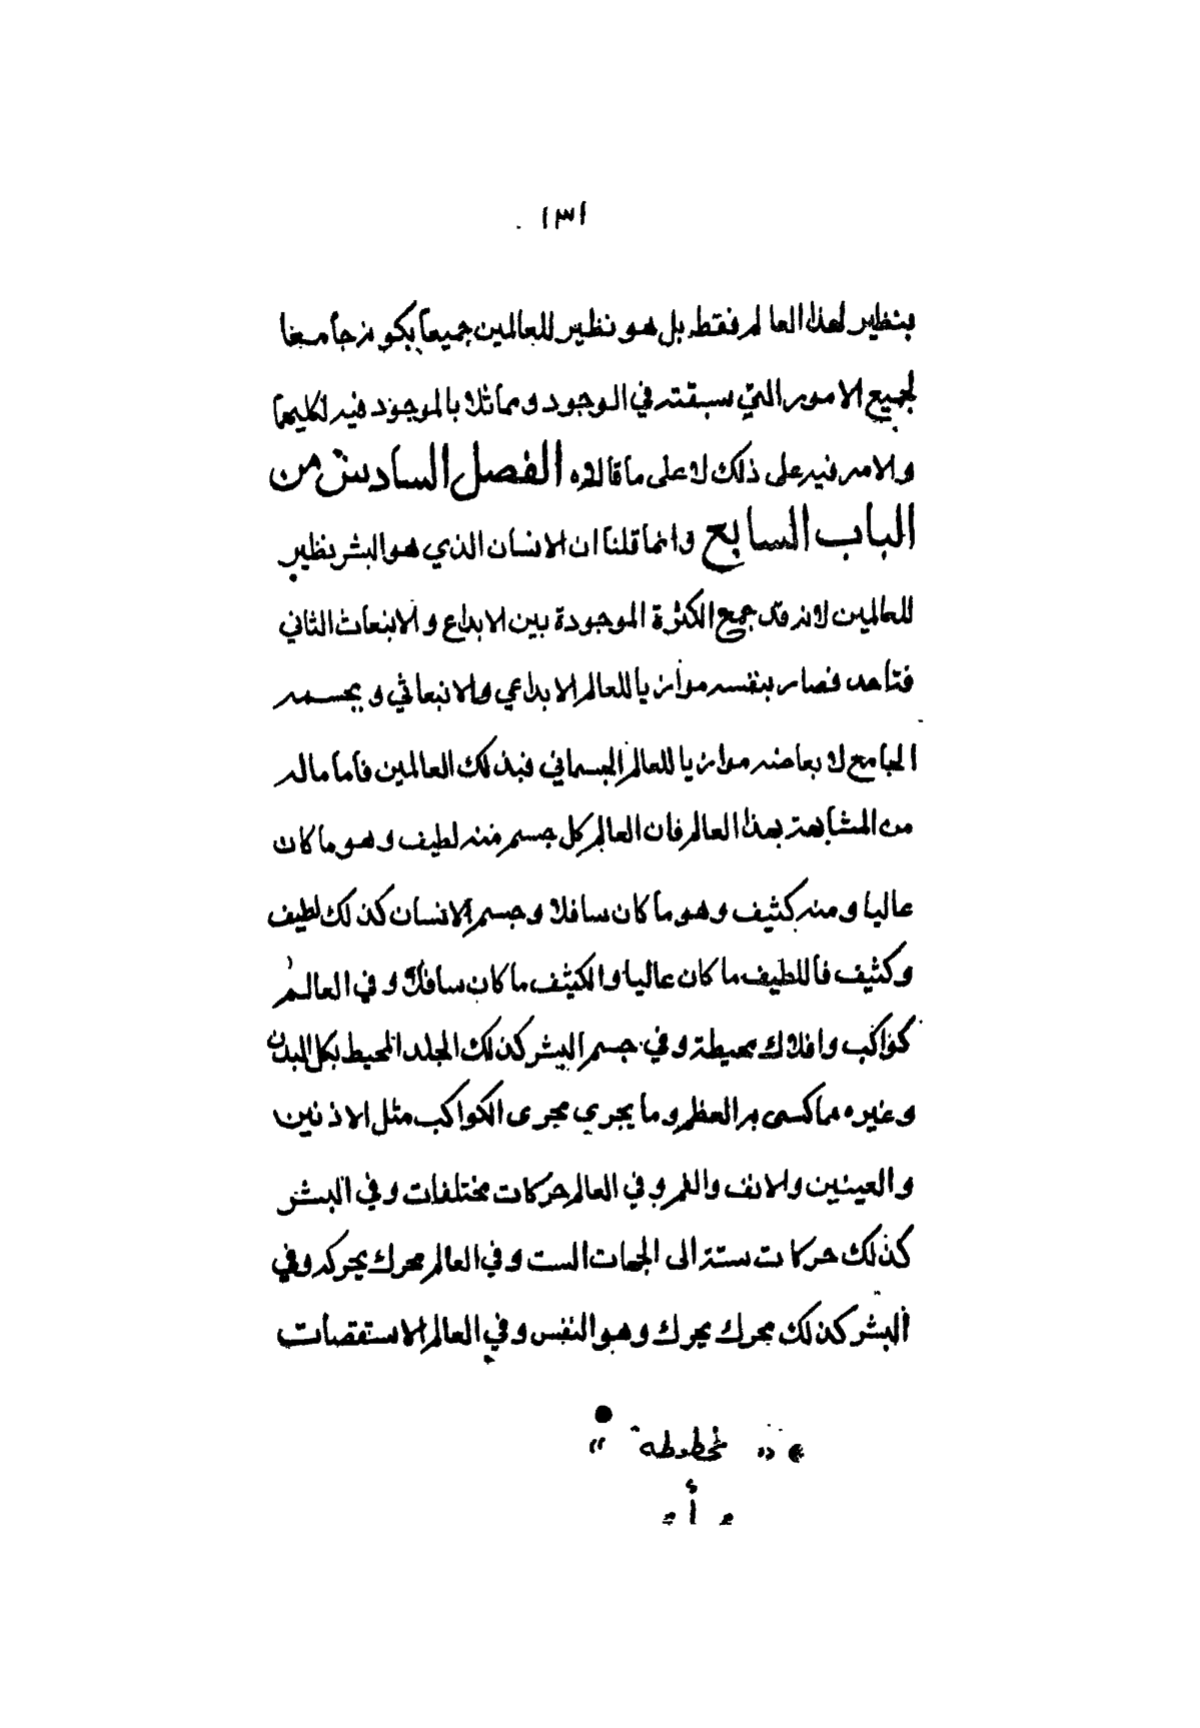 ١٣١
بنظير لهذا العالم فقط بل هو نظير للعالمين جميعا بكونه جامعا
لجميع الامور التي سبقته في الوجود ومماثلا بالموجود فيه لكليهما
والامر فيه على ذلك لا على ما قالاه الفصل السادس من
الباب السابع وانما قلنا ان الانسان الذي هو البشر نظير
للعالمين لانه قد جمع الكثرة الموجودة بين الابداع والانبعاث الثاني
فتأحد فصار بنفسه موازيا للعالم الابداعي والانبعاثي وبجسمه
الجامع لا بعاضه موازيا للعالم الجسماني فبذلك العالمين فأما ماله
من المشابهة بهذا العالم فان العالم كل جسم منه لطيف وهو ما كان
عاليا ومنه كثيف وهو ما كان سافلا وجسم الانسان كذلك لطيف
وكثيف فاللطيف ما كان عاليا والكثيف ما كان سافلا وفي العالم
كواكب وافلاك محيطة وفي جسم البشر كذلك الجلد المحيط بكل البدن
وغيره مما كسى به العظم وما يجري مجرى الكواكب مثل الاذنين
والعينين والانف والفم وفي العالم حركات مختلفات وفي البشر
كذلك حركات ستة الى الجهات الست وفي العالم محرك يحركه وفي
البشر كذلك محرك يحرك وهو النفس وفي العالم الاستقصات
مخطوطة
أ